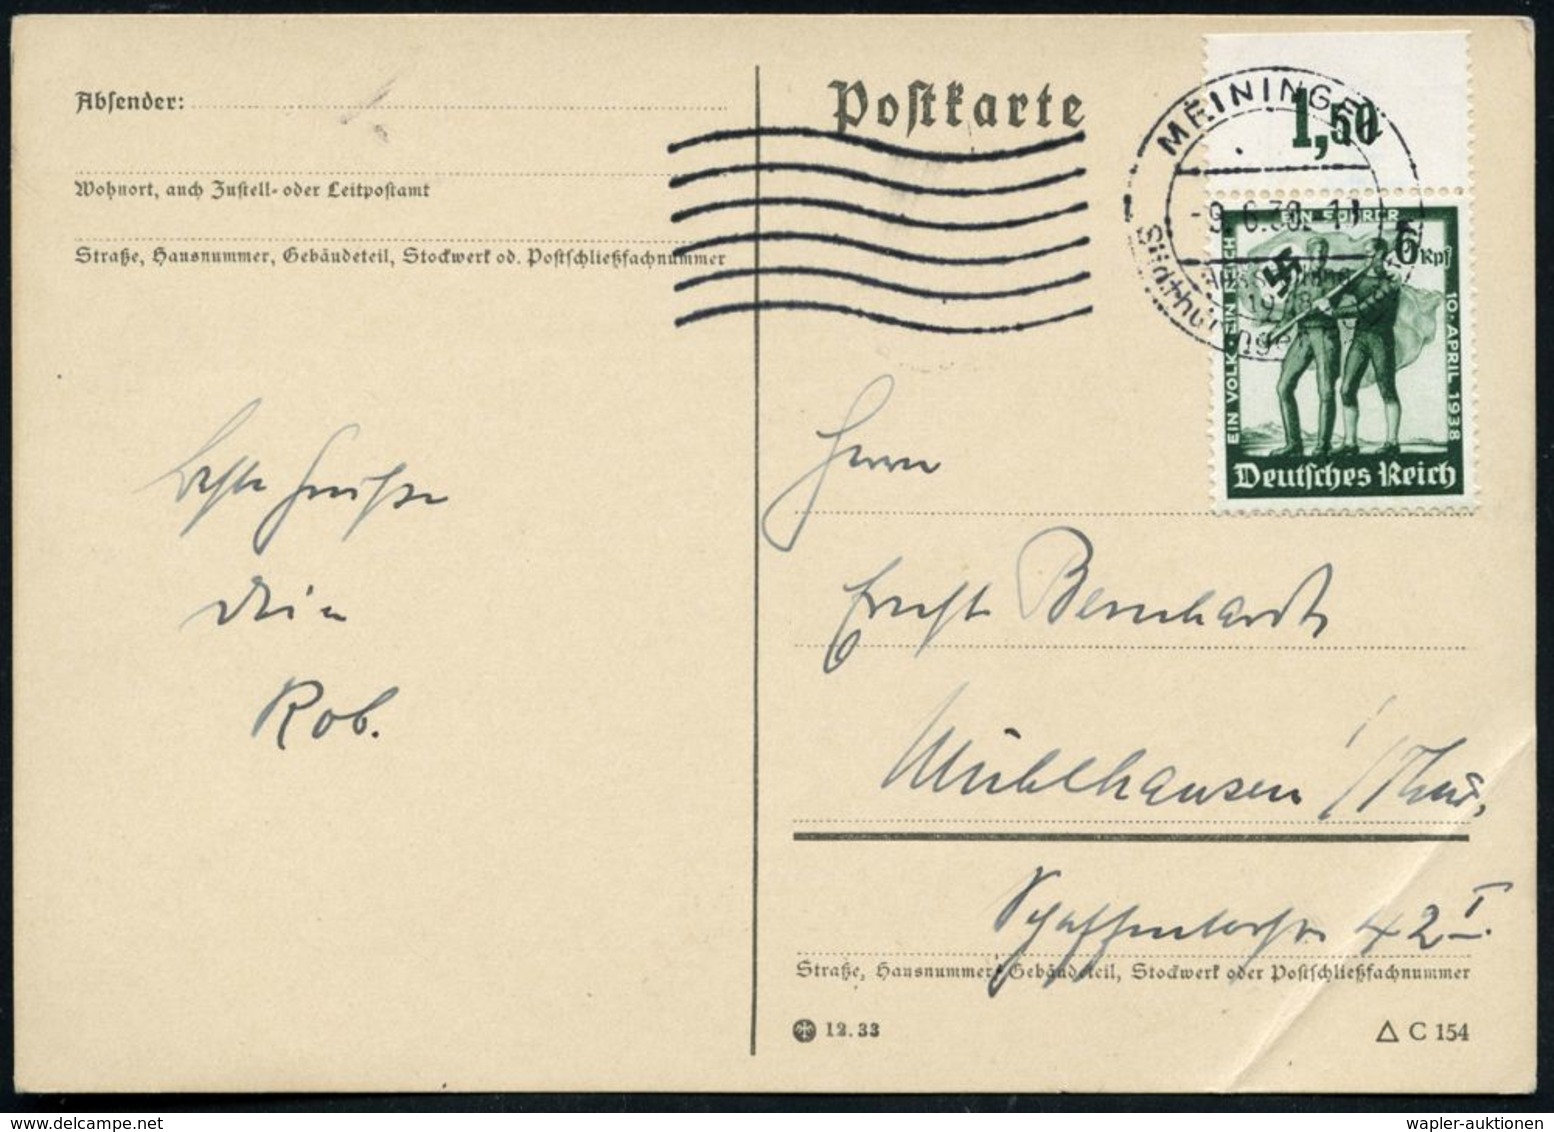 Absender:
Wohnort, auch Zustell- oder Leitpostamt
Straße, Hausnummer, Gebäudeteil, Stockwerk od. Postschließfachnummer
Postkarte
MEININGEN
1,50
-9.6.38.-1
Südthüringen
EIN VOLK · EIN REICH
EIN FÜHRER
6 Rpf
10. APRIL 1938
Deutsches Reich
beste Grüße
Dein
Rob.
Herrn
Ernst Bernhardt
Mühlhausen / Thür.
42 I.
Straße, Hausnummer, Gebäudeteil, Stockwerk oder Postschließfachnummer
12. 33
C 154
wapler-auktionen